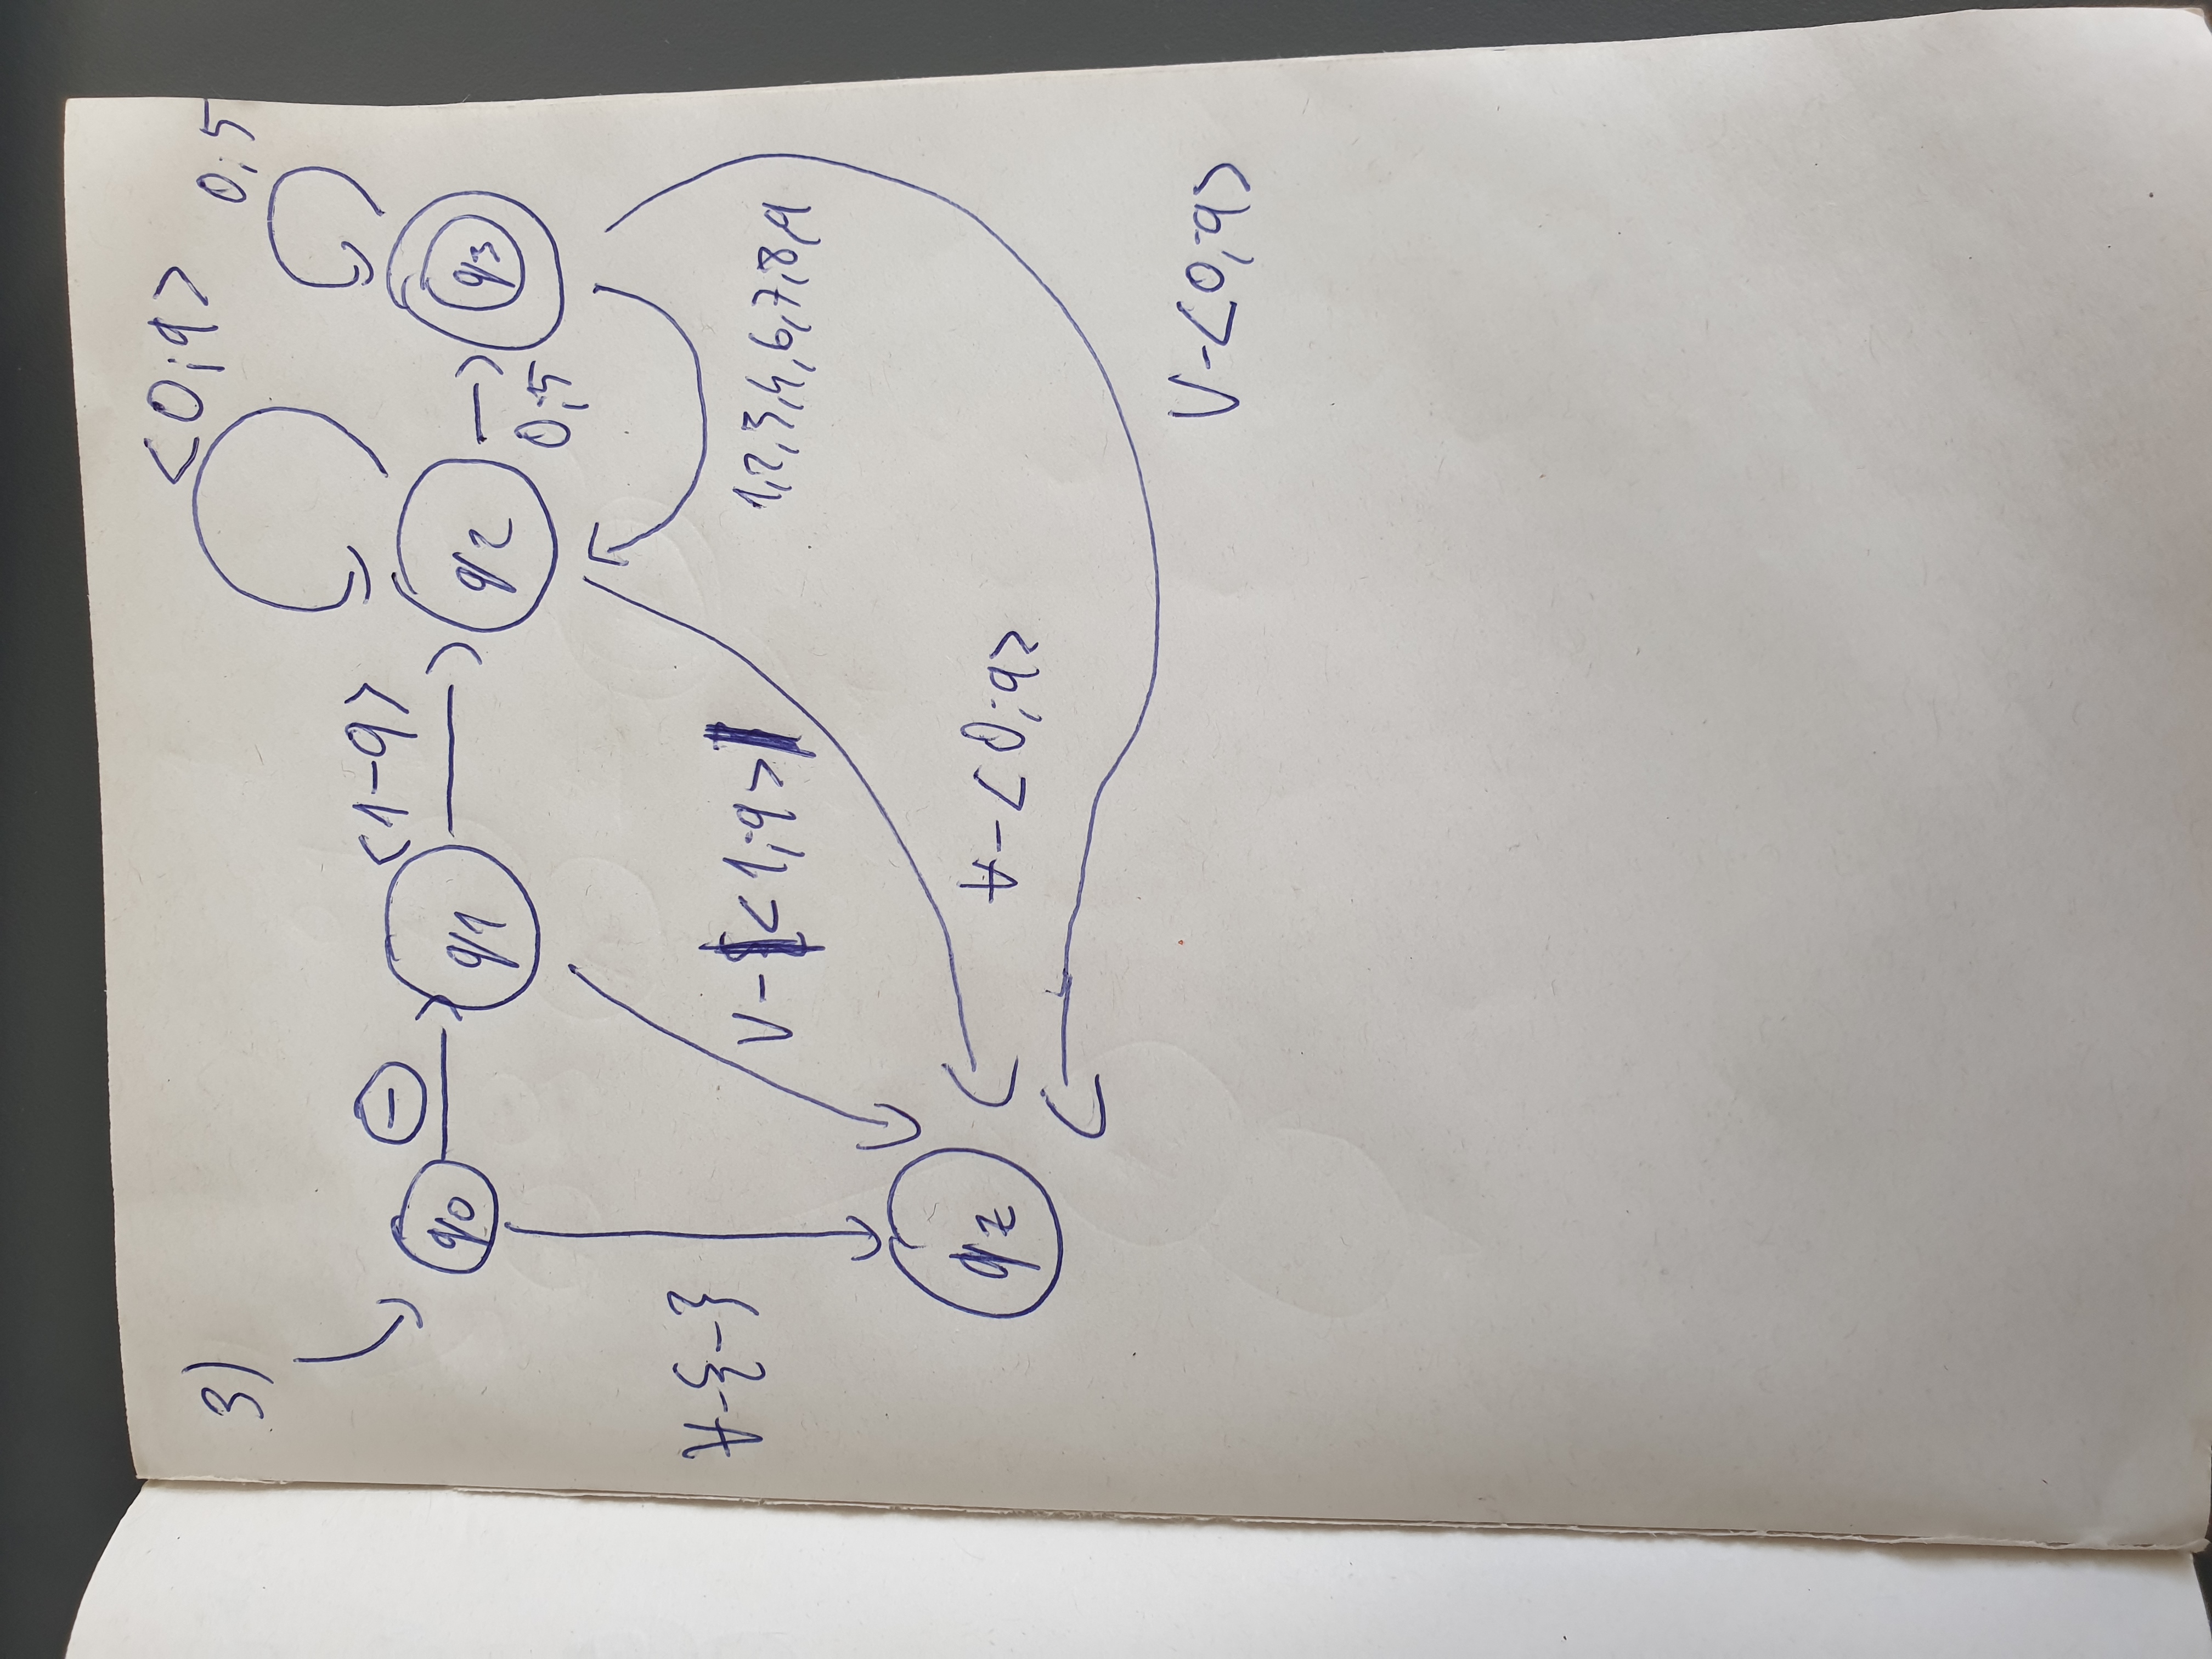 3)
<0;9>
0;5
-
<1-9>
q0
q1
q2
q3
0;5
∀-{-}
V-<1;9>
1,2,3,4,6,7,8,9
qz
∀-<0;9>
V-<0;9>